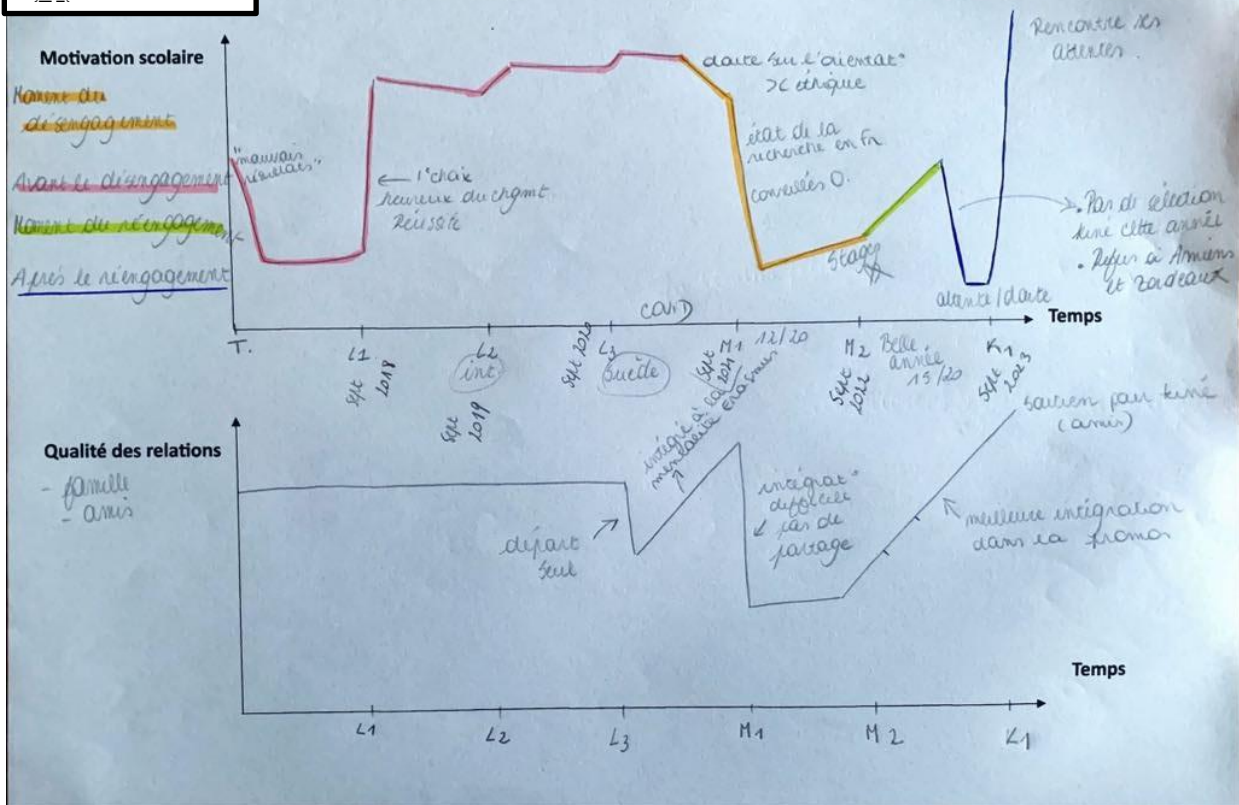 Motivation scolaire
Moment du
désengagement
Avant le désengagement
Moment du réengagement
Après le réengagement
"mauvais
résultats"
← 1er choix
heureux du chgmt.
Réussite
doute sur l'orientat°
>< éthique
état de la
recherche en Fr
conseillés O.
Stages
Rencontre ses
attentes.
• Pas de sélection
kiné cette année
• Refus à Amiens
et Bordeaux
attente/doute
COVID
Temps
T.
L1
Sept 2018
L2
int
Sept 2019
Sept 2020
L3
Suède
M1
Sept 2021
12/20
M2
Sept 2022
Belle
année
15/20
K1
Sept 2023
Qualité des relations
- famille
- amis
départ
seul
intégré à la
mentalité Erasmus
intégrat°
difficile
pas de
partage
soutien pour kiné
(amis)
meilleure intégration
dans la promo
Temps
L1
L2
L3
M1
M2
K1